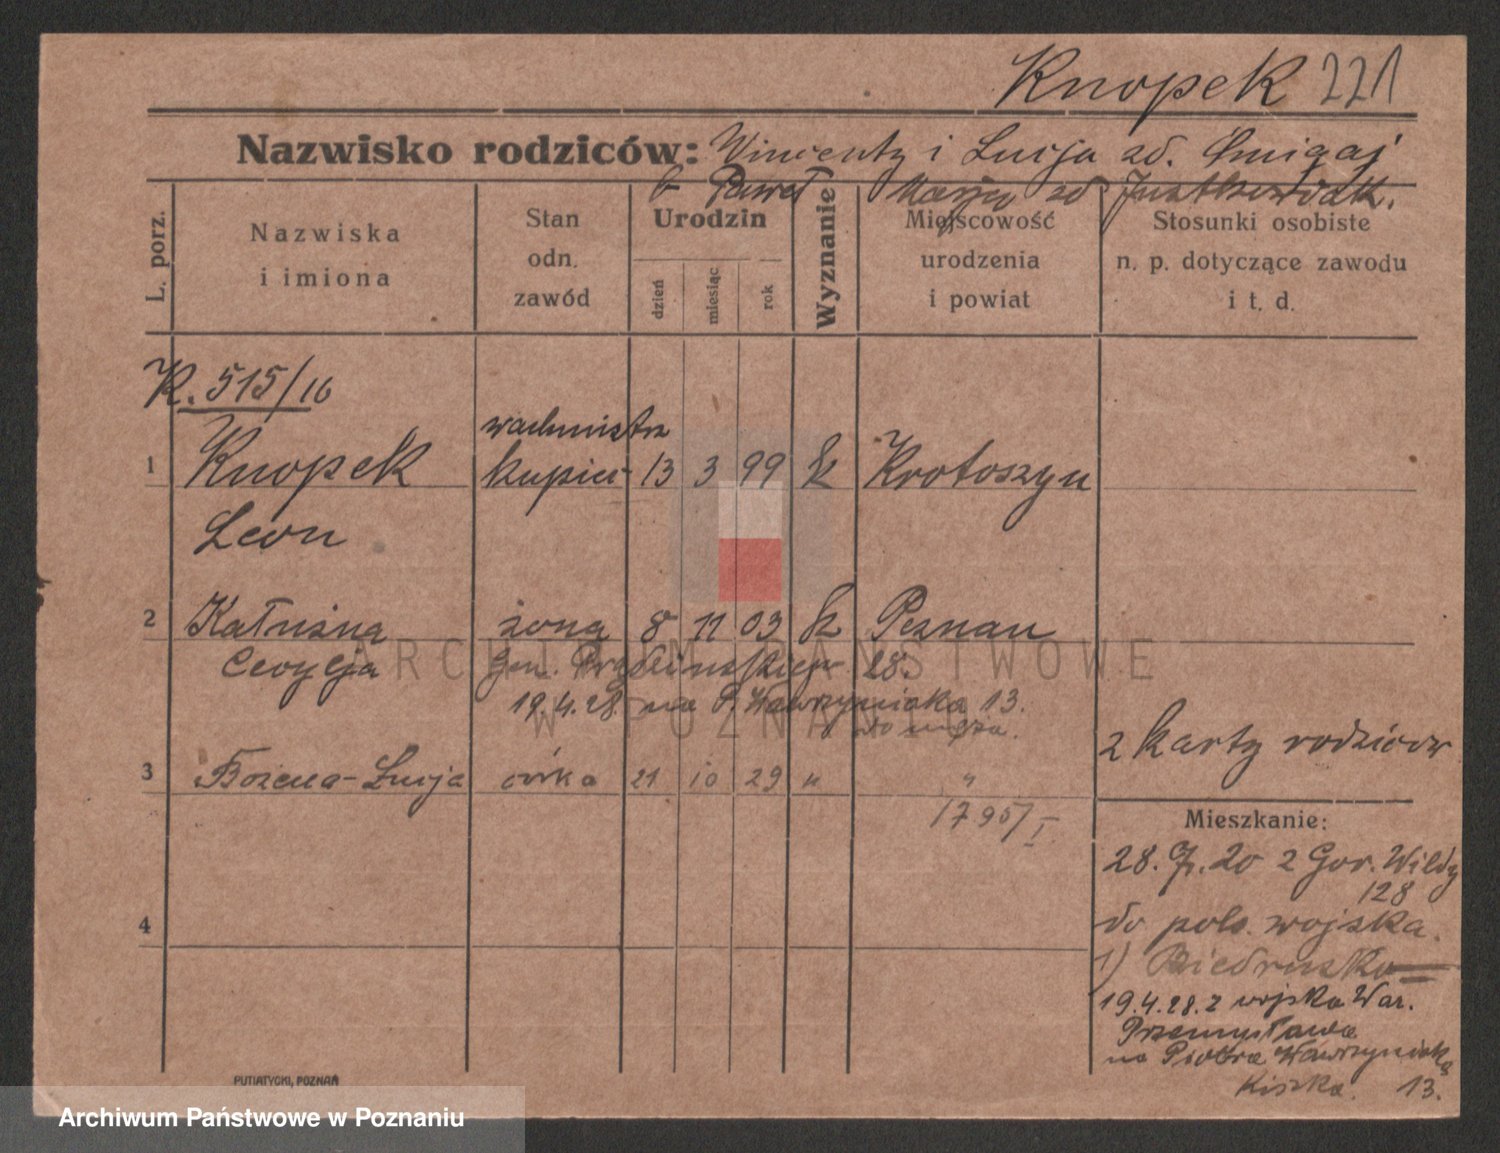 Knopek 221
Nazwisko rodziców: Wincenty i Lucja zd. Śmigaj
b Paweł Marja zd
L. porz.
Nazwiska
i imiona
Stan
odn.
zawód
Urodzin
dzień
miesiąc
rok
Wyznanie
Miejscowość
urodzenia
i powiat
Stosunki osobiste
n. p. dotyczące zawodu
i t. d.
K. 515/16
wachmistrz
1 Knopek kupiec 13 3 99 k Krotoszyn
Leon
2 Kałużna żona 8 11 03 k Poznań
Cecylja Gen. Prądzińskiego 28.
19.4.28. na P. Wawrzyniaka 13.
do męża.
2 karty rodziców
3 Bożena-Lucja córka 21 10 29 " "
1795/I
Mieszkanie:
28. 7. 20 z Gór. Wildy
128
do pols. wojska.
1) Biedrusko
4
19.4.28. z wojska War.
Przemysława
na Piotra Wawrzyniaka
Kiszka. 13.
PUTIATYCKI, POZNAŃ
ARCHIWUM PAŃSTWOWE
W POZNANIU
Archiwum Państwowe w Poznaniu